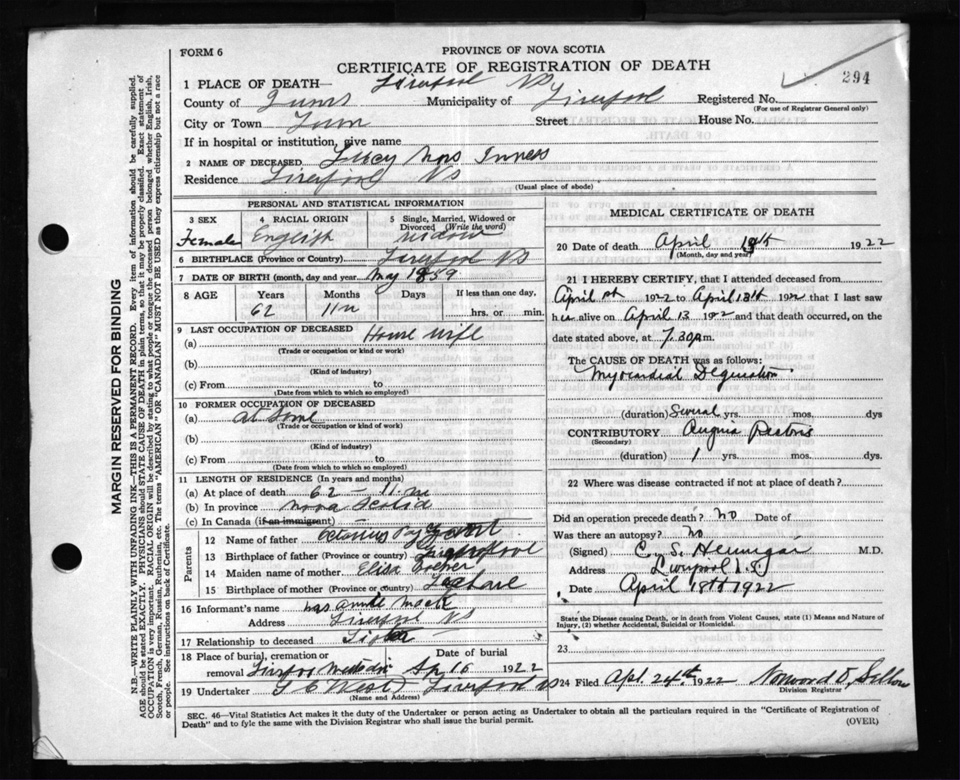 FORM 6
PROVINCE OF NOVA SCOTIA
CERTIFICATE OF REGISTRATION OF DEATH
294
1 PLACE OF DEATH— Liverpool NS
County of Municipality of Liverpool Registered No.
(For use of Registrar General only)
City or Town Town Street House No.
If in hospital or institution, give name
2 NAME OF DECEASED Inness
Residence Liverpool NS
(Usual place of abode)
PERSONAL AND STATISTICAL INFORMATION
3 SEX
Female
4 RACIAL ORIGIN
English
5 Single, Married, Widowed or Divorced (Write the word)
widow
6 BIRTHPLACE (Province or Country) Liverpool NS
7 DATE OF BIRTH (month, day and year) May 1859
8 AGE Years Months Days If less than one day,
62 11m hrs. or min.
9 LAST OCCUPATION OF DECEASED
(a) House wife
(Trade or occupation or kind or work)
(b)
(Kind of industry)
(c) From to
(Date from which to which so employed)
10 FORMER OCCUPATION OF DECEASED
(a) at
(Trade or occupation or kind of work)
(b)
(Kind of industry)
(c) From to
(Date from which to which so employed)
11 LENGTH OF RESIDENCE (In years and months)
(a) At place of death 62 – 11 m
(b) In province Nova Scotia
(c) In Canada (if an immigrant)
Parents
12 Name of father
13 Birthplace of father (Province or country) Liverpool
14 Maiden name of mother Eliza
15 Birthplace of mother (Province or country)
16 Informant's name Mrs Annie Mack
Address Liverpool NS
17 Relationship to deceased Sister
18 Place of burial, cremation or removal Date of burial
Ap 16 1922
19 Undertaker Liverpool NS
(Name and Address)
MEDICAL CERTIFICATE OF DEATH
20 Date of death April 1922
(Month, day and year)
21 I HEREBY CERTIFY, that I attended deceased from
April 1922 to April 13th 1922 that I last saw
her alive on April 13 1922 and that death occurred, on the
date stated above, at 7.30 p.m.
The CAUSE OF DEATH was as follows:
Myocardial
(duration) yrs. mos. dys
CONTRIBUTORY Angina Pectoris
(Secondary)
(duration) 1 yrs. mos. dys
22 Where was disease contracted if not at place of death?
Did an operation precede death? no Date of
Was there an autopsy? no
(Signed) C. S. Hennigar M.D.
Address Liverpool N.S.
Date April 1922
State the Disease causing Death, or in death from Violent Causes, state (1) Means and Nature of Injury, (2) whether Accidental, Suicidal or Homicidal.
23
24 Filed Apl. 24th. 1922 Norwood D.
Division Registrar
SEC. 46—Vital Statistics Act makes it the duty of the Undertaker or person acting as Undertaker to obtain all the particulars required in the "Certificate of Registration of
Death" and to fyle the same with the Division Registrar who shall issue the burial permit.
(OVER)
MARGIN RESERVED FOR BINDING
N.B.—WRITE PLAINLY WITH UNFADING INK—THIS IS A PERMANENT RECORD. Every item of information should be carefully supplied.
AGE should be stated EXACTLY. PHYSICIANS should STATE CAUSE OF DEATH in plain terms, so that it may be properly classified. Exact statement of
OCCUPATION is very important. RACIAL ORIGIN will be described by stating to what people or tongue the deceased person belonged whether English, Irish,
Scotch, French, German, Russian, Ruthenian, etc. The terms "AMERICAN" OR "CANADIAN" MUST NOT BE USED as they express citizenship but not a race
or people. See instructions on back of Certificate.